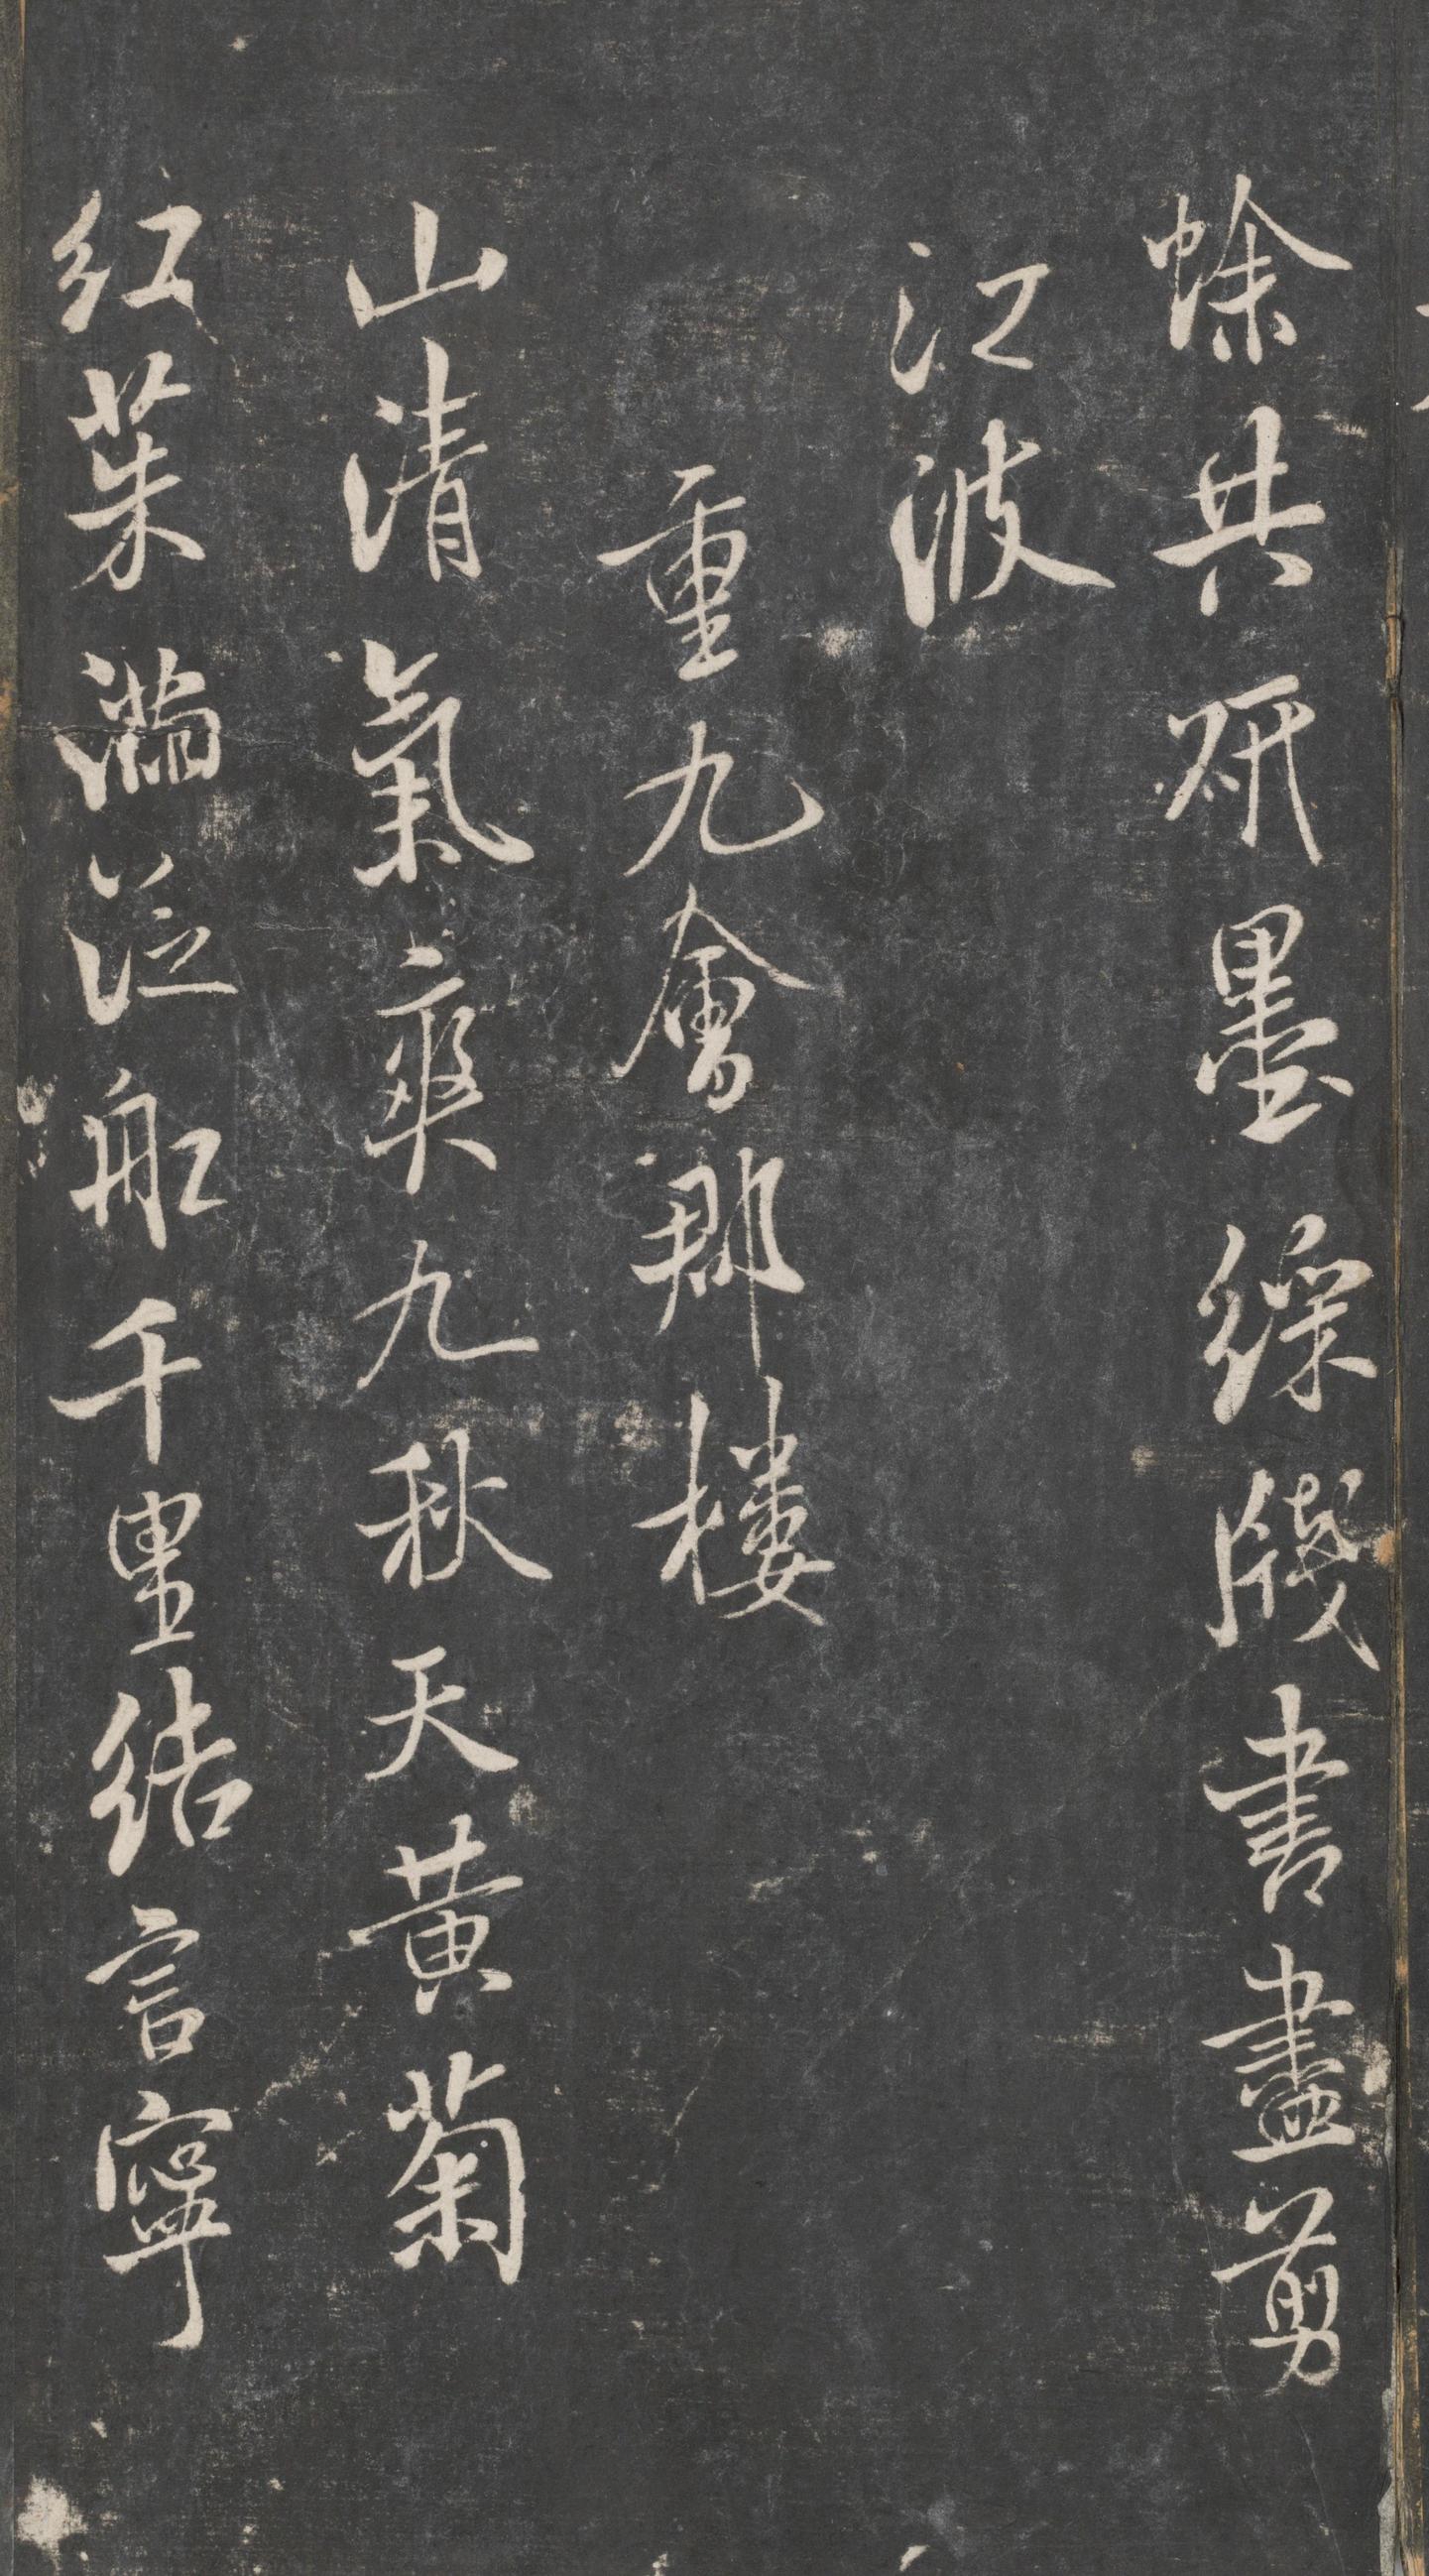 蜍共研墨綵牋書盡剪
江波
重九會郡樓
山清氣爽九秋天黃菊
紅茱滿泛船千里結言寧